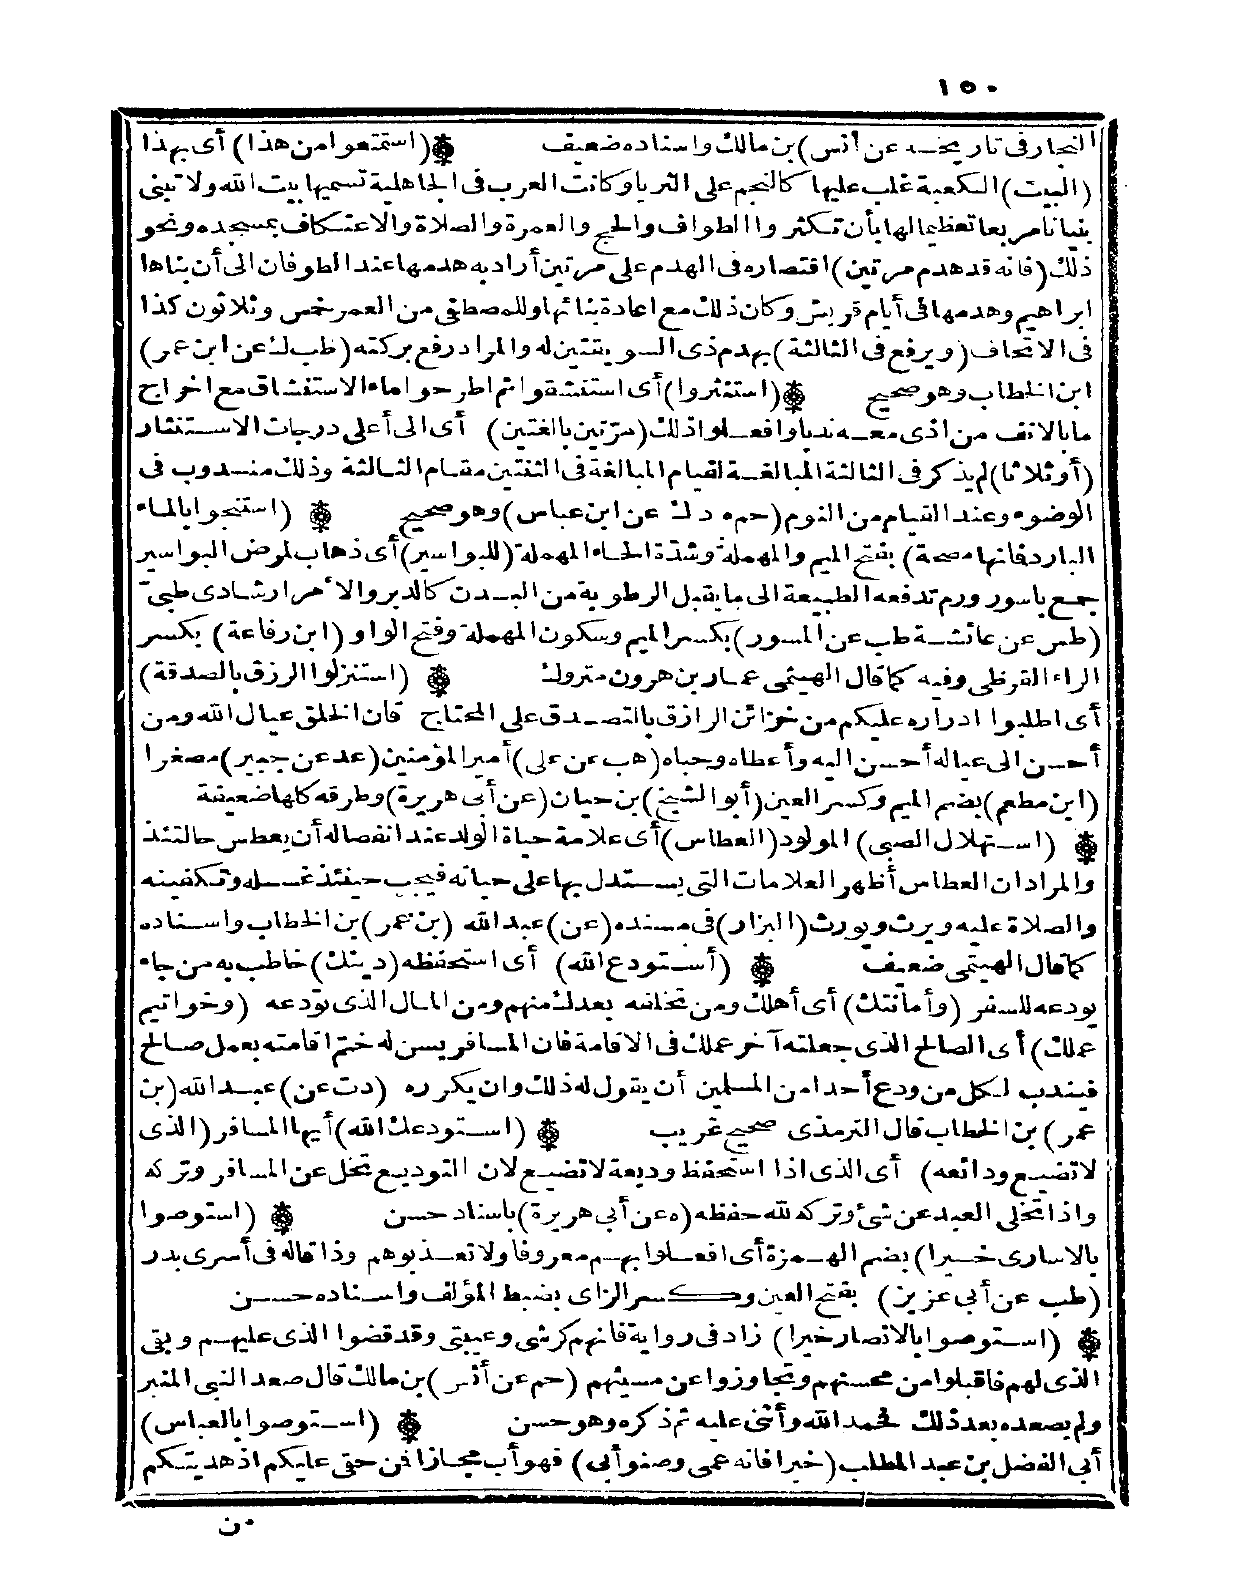 ١٥٠
النجار فى تاريخه عن أنس) بن مالك واسناده ضعيف ۞ (استمتعوا من هذا) أى بهذا
(البيت) الكعبة غلب عليها كالنجم على الثريا وكانت العرب فى الجاهلية تسميها بيت الله ولا تبنى
بنيانا مربعا تعظيما لها بأن تكثروا الطواف والحج والعمرة والصلاة والاعتكاف بمسجده ونحو
ذلك (فانه قد هدم مرتين) اقتصاره فى الهدم على مرتين أراد به هدمها عند الطوفان الى أن بناها
ابراهيم وهدمها فى أيام قريش وكان ذلك مع اعادة بنائها وللمصطفى من العمر خمس وثلاثون كذا
فى الاتحاف (ويرفع فى الثالثة) بهدم ذى السويقتين له والمراد رفع بركته (طب ك عن ابن عمر)
ابن الخطاب وهو صحيح ۞ (استنثروا) أى استنشقوا ثم اطرحوا ماء الاستنشاق مع اخراج
ما بالانف من اذى معه ندبا وافعلوا ذلك (مرّتين بالغتين) أى الى أعلى درجات الاستنثار
(أو ثلاثا) لم يذكر فى الثالثة المبالغة لقيام المبالغة فى الثنتين مقام الثالثة وذلك مندوب فى
الوضوء وعند القيام من النوم (حم ه د ك عن ابن عباس) وهو صحيح ۞ (استنجوا بالماء
البارد فانها مصحة) بفتح الميم والمهملة وشدّة الحاء المهملة (للبواسير) أى ذهاب لمرض البواسير
جمع باسور ورم تدفعه الطبيعة الى ما يقبل الرطوبة من البدن كالدبر والأمر ارشادى طبىّ
(طس عن عائشة طب عن المسور) بكسر الميم وسكون المهملة وفتح الواو (ابن رفاعة) بكسر
الراء القرظى وفيه كما قال الهيثمى عمار بن هرون متروك ۞ (استنزلوا الرزق بالصدقة)
أى اطلبوا ادراره عليكم من خزائن الرازق بالتصدق على المحتاج فان الخلق عيال الله ومن
أحسن الى عياله أحسن اليه وأعطاه وحباه (هب عن على) أمير المؤمنين (عد عن جبير) مصغرا
(ابن مطعم) بضم الميم وكسر العين (أبو الشيخ) بن حيان (عن أبى هريرة) وطرقه كلها ضعيفة
۞ (استهلال الصبى) المولود (العطاس) أى علامة حياة الولد عند انفصاله أن يعطس حالتئذ
والمراد ان العطاس أظهر العلامات التى يستدل بها على حياته فيجب حينئذ غسله وتكفينه
والصلاة عليه ويرث ويورث (البزار) فى مسنده (عن) عبد الله (بن عمر) بن الخطاب واسناده
كما قال الهيثمى ضعيف ۞ (أستودع الله) أى استحفظه (دينك) خاطب به من جاء
يودعه للسفر (وأمانتك) أى أهلك ومن تخلفه بعدك منهم ومن المال الذى تودعه (وخواتيم
عملك) أى الصالح الذى جعلته آخر عملك فى الاقامة فان المسافر يسن له ختم اقامته بعمل صالح
فيندب لكل من ودع أحدا من المسلمين أن يقول له ذلك وان يكرره (دت عن) عبد الله (بن
عمر) بن الخطاب قال الترمذى صحيح غريب ۞ (استودعك الله) أيها المسافر (الذى
لا تضيع ودائعه) أى الذى اذا استحفظ وديعة لا تضيع لان التوديع تخل عن المسافر وتركه
واذا تخلى العبد عن شئ وتركه لله حفظه (ه عن أبى هريرة) باسناد حسن ۞ (استوصوا
بالاسارى خيرا) بضم الهمزة أى افعلوا بهم معروفا ولا تعذبوهم وذا قاله فى أسرى بدر
(طب عن أبى عزيز) بفتح العين وكسر الزاى بضبط المؤلف واسناده حسن
۞ (استوصوا بالانصار خيرا) زاد فى رواية فانهم كرشى وعيبتى وقد قضوا الذى عليهم وبقى
الذى لهم فاقبلوا من محسنهم وتجاوزوا عن مسيئهم (حم عن أنس) بن مالك قال صعد النبى المنبر
ولم يصعده بعد ذلك فحمد الله وأثنى عليه ثم ذكره وهو حسن ۞ (استوصوا بالعباس)
أبى الفضل بن عبد المطلب (خيرا فانه عمى وصنو أبى) فهو أب مجازا فن حقى عليكم اذ هديتكم
ن